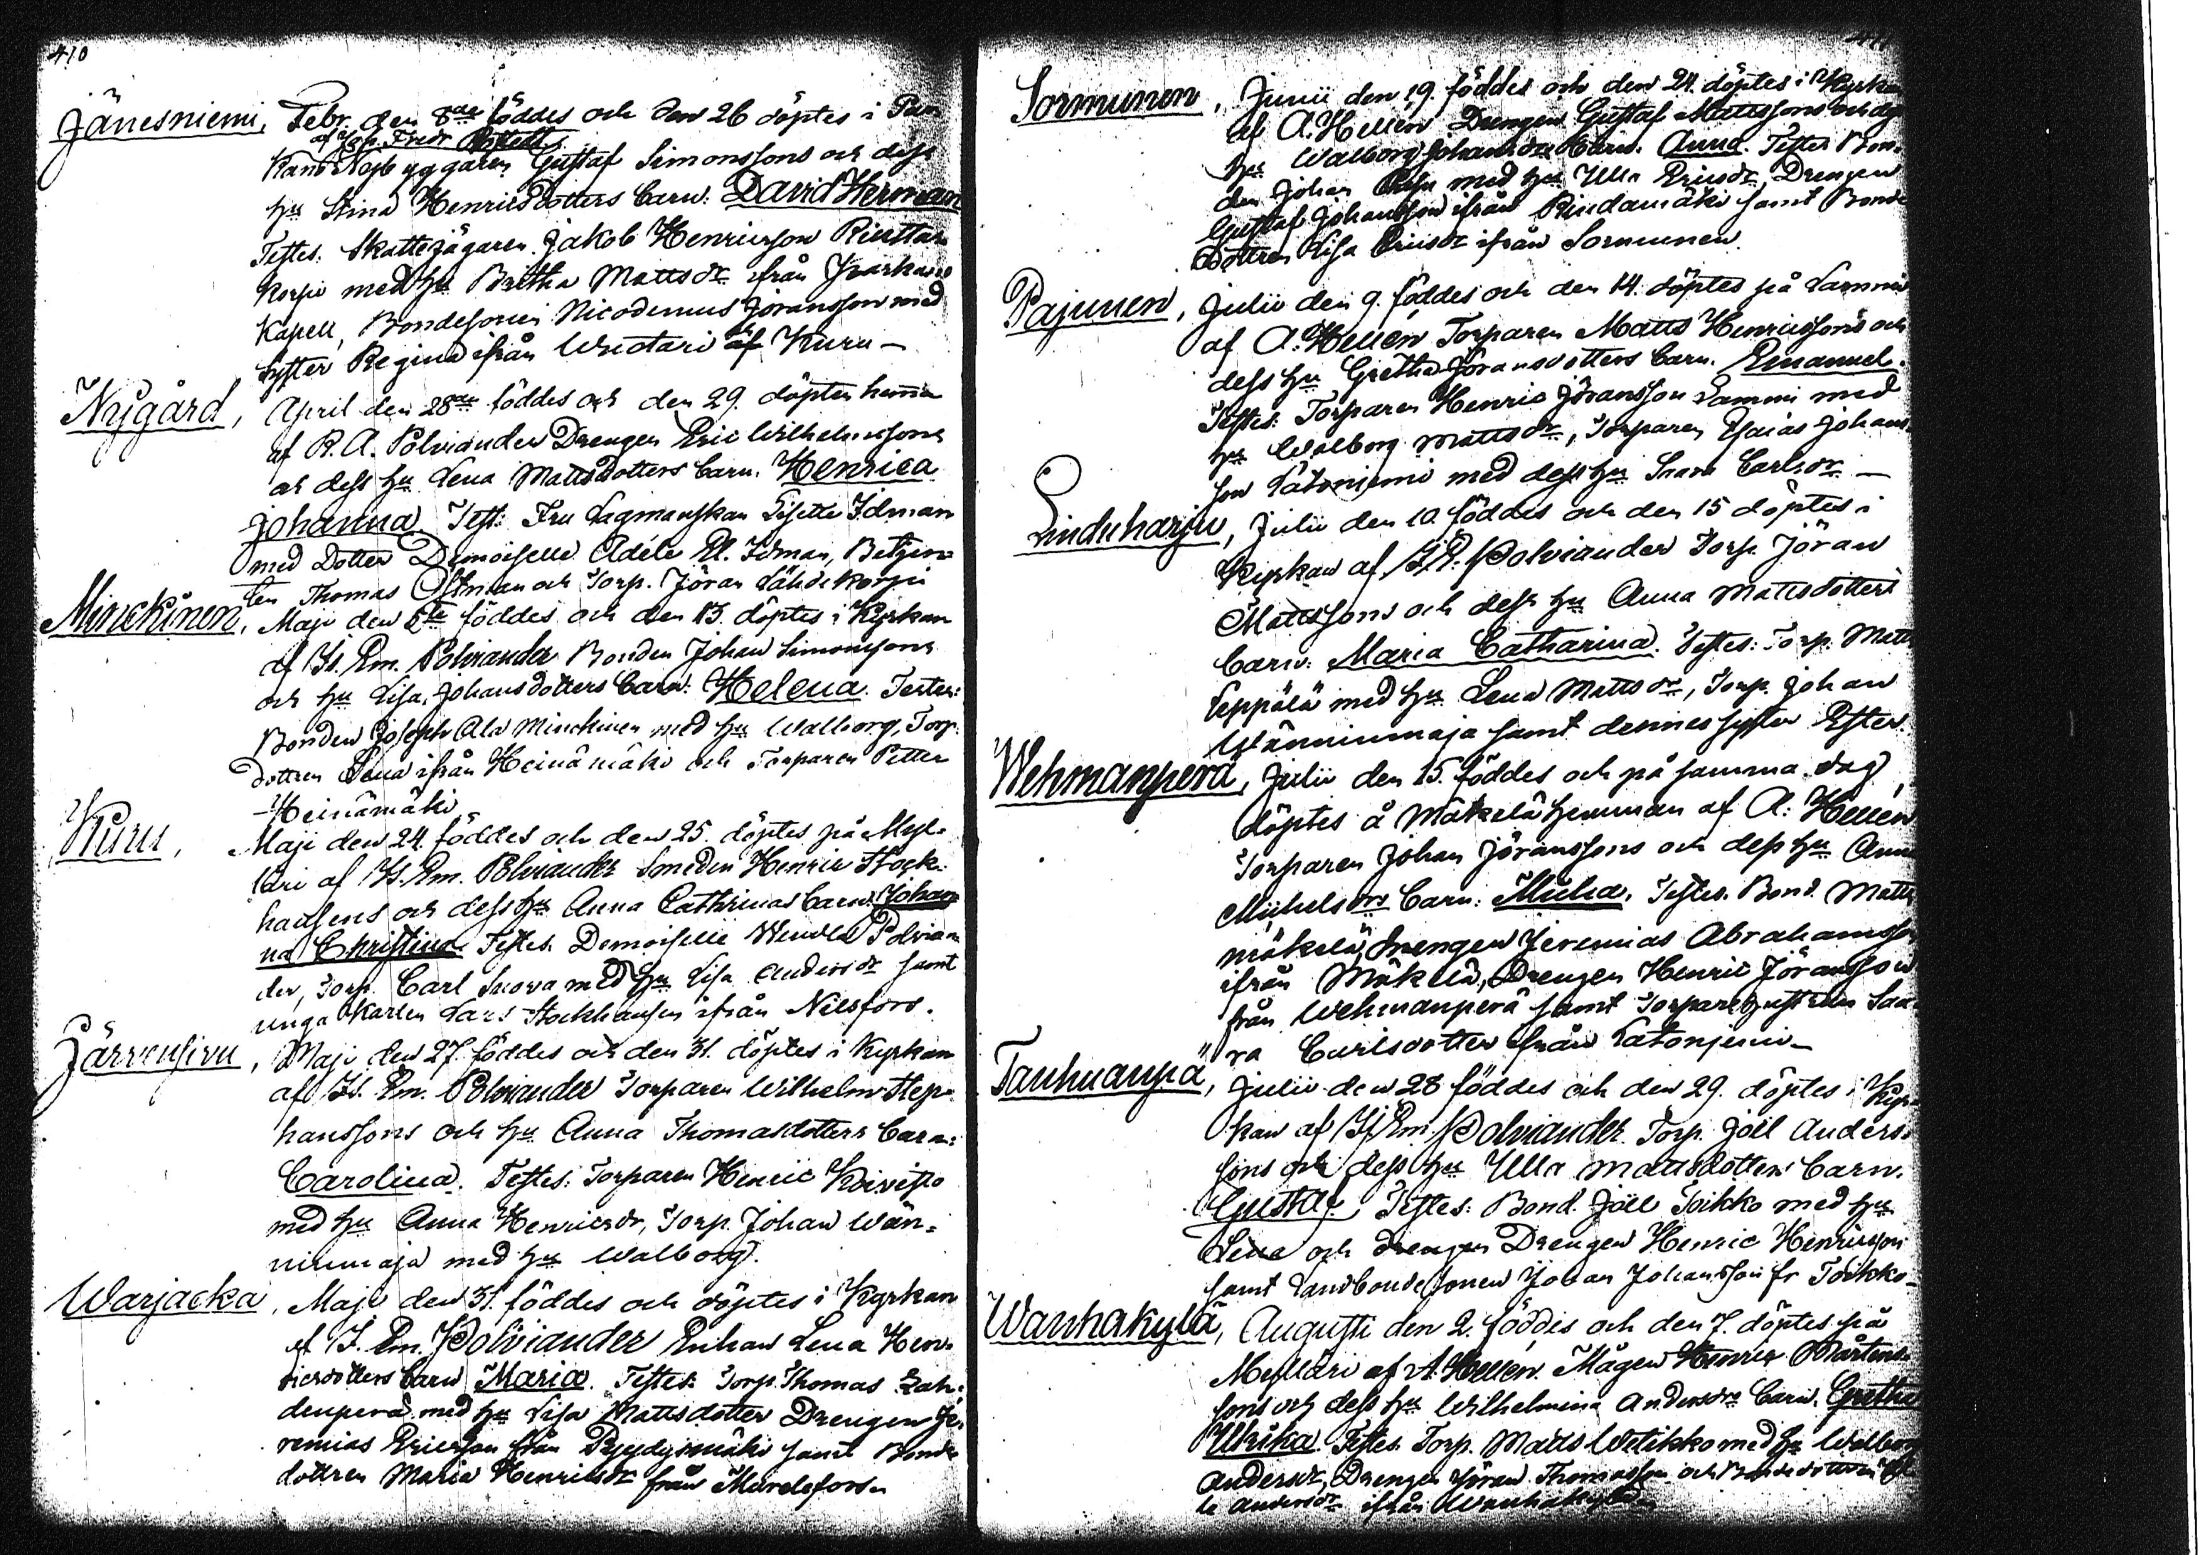 410
Jänesniemi, Febr. den 8de föddes och den 26 döptes i
af
Kano Nybyggaren Gustaf Simonssons och dess
hu Stina Henricsdotters barn: David Herman
Testes. Skattejägaren Jakob Henricsson
Korpi med hu Bretha Mattsdr ifrån
Kapell, Bondesonen Nicodemus Jöransson med
syster Regina ifrån af Kuru –
Nygård, April den 28de föddes och den 29. döptes hemma
af R. A. Polviander Drengen Eric Wilhelmssons
och dess hu Lena Mattsdotters barn. Henrica
Johanna. Test: Fru Lagmanskan Lisette Idman
med dotter Demoiselle Adéle El. Idman, Betjen-
ten Thomas Östman och Torp. Jöran Lähdekorpi
Minckinen, Maji den 5te föddes och den 13. döptes i Kyrkan
af Is. Em. Polviander Bonden Johan Simonssons
och hu Lisa Johansdotters barn: Helena. Testes:
Bonden Joseph Ala Minckinen med hu Walborg, Torp.
dottren Lena ifrån Heinämäki och Torparen Petter
Heinämäki
Kuru, Maji den 24. föddes och den 25. döptes på Myl-
läri af Is. Em. Polviander Smeden Henric Stock-
hausens och dess hu Anna Cathrinas barn: Johan-
na Christina. Testes. Demoiselle Wendla Polvian-
der, Torp. Carl Suova med hu Lisa Andersdr samt
unga Karlen Lars Stockhausen ifrån Nilsfors.
Järvensivu, Maji den 27. föddes och den 31. döptes i Kyrkan
af Is. Em. Polviander Torparen Wilhelm Step-
hanssons och hu Anna Thomasdotters barn:
Carolina. Testes: Torparen Henric Koivisto
med hu Anna Henricsdr, Torp. Johan Wän-
ninmaja med hu Walborg.
Warjacka, Maji den 31. föddes och döptes i Kyrkan
af I. Em. Polviander Enkan Lena Hen-
ricsdotters barn Maria. Testes: Torp. Thomas Lah-
denperä med hu Lisa Mattsdotter Drengen Je-
remias Ericsson från samt Bonde
dottren Maria Henricsdr från
Sormunen, Junii den 19. föddes och den 24. döptes i Kyrkan
af A. Hellén Drengen Gustaf Mattssons och dess
hu Walborg Johansdrs barn. Anna. Testes Bon-
den Johan med hu Ulla Ericsdr, Drengen
Gustaf Johansson ifrån Rindamäki samt Bonde
dottren Lisa Ericsdr ifrån Sormunen.
Pajunen, Julii den 9. föddes och den 14. döptes på Lammi
af A. Hellén Torparen Matts Henricssons och
dess hu Gretha Jöransdotters barn. Emanuel.
Testes: Torparen Henric Jöransson Lammi med
hu Walborg Mattsdr, Torparen Esaias Johans-
son Latoniemi med dess hu Saara Carlsdr –
Linduharju, Julii den 10. föddes och den 15 döptes i
Kyrkan af Polviander Torp. Jöran
Mattssons och dess hu Anna Mattsdotters
barn: Maria Catharina. Testes: Torp. Matts
Leppälä med hu Lena Mattsdr, Torp. Johan
Wänninmaja samt dennes syster Ester.
Wehmanperä, Julii den 15. föddes och på samma dag
döptes å Mäkelä hemman af A: Hellén
Torparen Johan Jöranssons och dess hu Anna
Michelsdrs barn: Michel. Testes. Bond. Matts
Mäkelä, Drengen Jeremias Abrahamsson
ifrån Mäkelä, Drengen Henric Jöransson
från Wehmanperä samt Torparehustrun Saa-
ra Carlsdotter ifrån Latoniemi –
Tanhuanpä, Julii den 28 föddes och den 29. döptes i Kyr-
kan af Is. Em. Polviander. Torp. Joel Anders-
sons och dess hu Ulla Mattsdotters barn.
Gustaf. Testes: Bond. Joel Toikko med hu
Lena och drengen Drengen Henric Henricsson
samt Landbondesonen Johan Johansson fr Toikko –
Wanhakylä, Augusti den 2. föddes och den 7. döptes på
Mylläri af A. Hellén. Mågen Henric Mårtens-
sons och dess hu Wilhelmina Andersdrs barn. Gretha
Ulrika. Testes. Torp. Matts Wetikko med hu Walborg
Andersdr, Drengen Jöran Thomasson och Bondedottren
Andersdr ifrån Wanhakylä